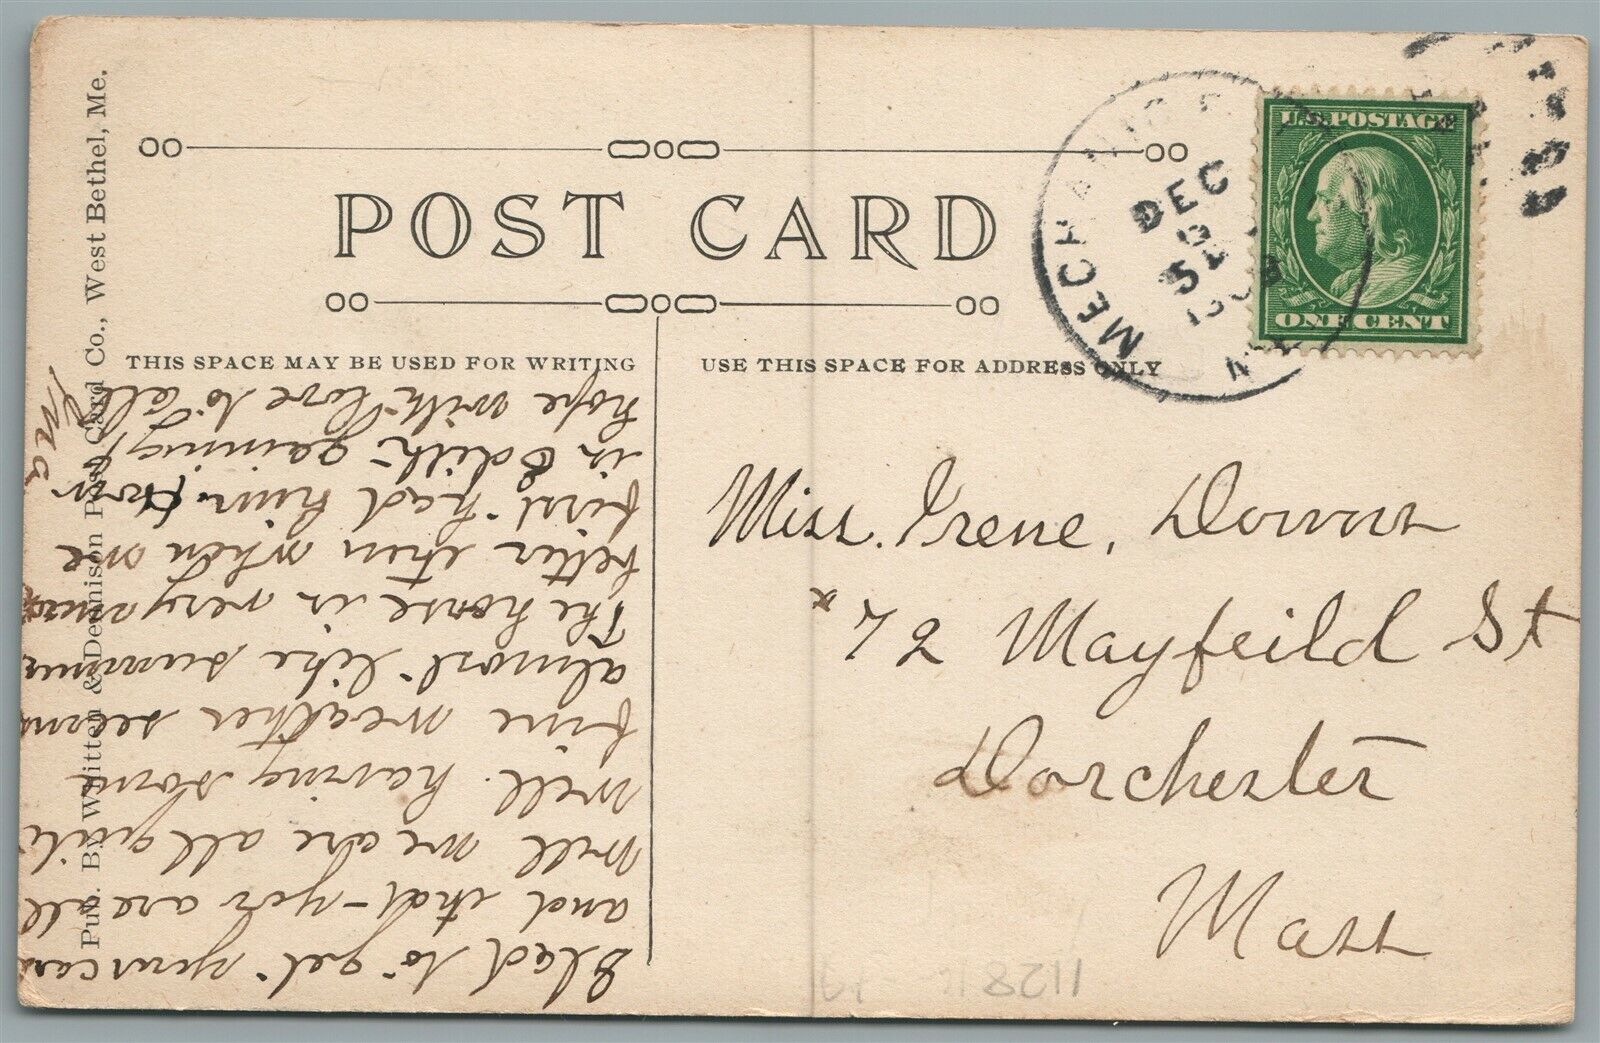 POST CARD
THIS SPACE MAY BE USED FOR WRITING
USE THIS SPACE FOR ADDRESS ONLY
Pub. By Whitten & Dennison Post Card Co., West Bethel, Me.
MECHANIC
DEC
ME
U.S. POSTAGE
ONE CENT
Miss. Irene, Downs
72 Mayfeild St
Dorchester
Mass
Glad to get your card
and that you are all
well we are all quite
well. having some
fine weather seems
almost like summer
The horse is very much
better then when we
first had him. How
is Edith gaining I
hope with love to all
1128